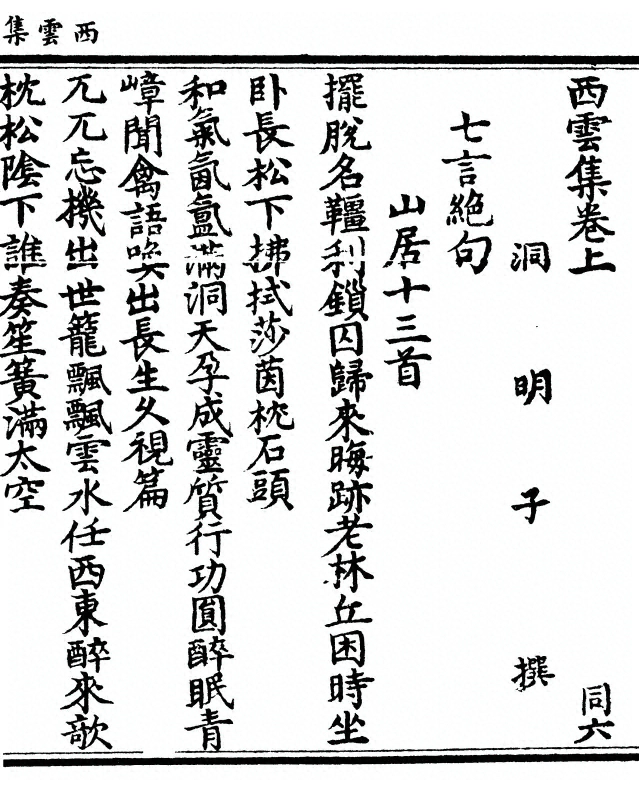 西雲集
西雲集卷上
同六
洞明子撰
七言絕句
山居十三首
擺脫名韁利鎖囚歸來晦跡老林丘困時坐
卧長松下拂拭莎茵枕石頭
和氣氤氳滿洞天孕成靈質行功圓醉眠青
嶂聞禽語喚出長生久視篇
兀兀忘機出世籠飄飄雲水任西東醉來歌
枕松陰下誰奏笙簧滿太空